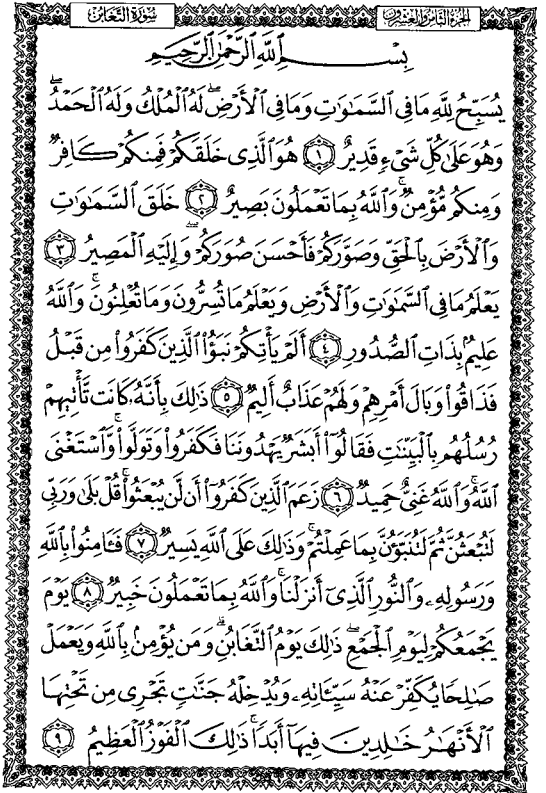 الجزء الثامن والعشرون
سورة التغابن
بِسْمِ اللَّهِ الرَّحْمَٰنِ الرَّحِيمِ
يُسَبِّحُ لِلَّهِ مَا فِي السَّمَٰوَٰتِ وَمَا فِي الْأَرْضِ ۖ لَهُ الْمُلْكُ وَلَهُ الْحَمْدُ ۖ
وَهُوَ عَلَىٰ كُلِّ شَيْءٍ قَدِيرٌ ١ هُوَ الَّذِي خَلَقَكُمْ فَمِنكُمْ كَافِرٌ
وَمِنكُم مُّؤْمِنٌ ۚ وَاللَّهُ بِمَا تَعْمَلُونَ بَصِيرٌ ٢ خَلَقَ السَّمَٰوَٰتِ
وَالْأَرْضَ بِالْحَقِّ وَصَوَّرَكُمْ فَأَحْسَنَ صُوَرَكُمْ ۖ وَإِلَيْهِ الْمَصِيرُ ٣
يَعْلَمُ مَا فِي السَّمَٰوَٰتِ وَالْأَرْضِ وَيَعْلَمُ مَا تُسِرُّونَ وَمَا تُعْلِنُونَ ۚ وَاللَّهُ
عَلِيمٌ بِذَاتِ الصُّدُورِ ٤ أَلَمْ يَأْتِكُمْ نَبَؤُا۟ الَّذِينَ كَفَرُوا۟ مِن قَبْلُ
فَذَاقُوا۟ وَبَالَ أَمْرِهِمْ وَلَهُمْ عَذَابٌ أَلِيمٌ ٥ ذَٰلِكَ بِأَنَّهُۥ كَانَت تَّأْتِيهِمْ
رُسُلُهُم بِالْبَيِّنَٰتِ فَقَالُوٓا۟ أَبَشَرٌ يَهْدُونَنَا فَكَفَرُوا۟ وَتَوَلَّوا۟ ۚ وَّاسْتَغْنَى
اللَّهُ ۚ وَاللَّهُ غَنِيٌّ حَمِيدٌ ٦ زَعَمَ الَّذِينَ كَفَرُوٓا۟ أَن لَّن يُبْعَثُوا۟ ۚ قُلْ بَلَىٰ وَرَبِّي
لَتُبْعَثُنَّ ثُمَّ لَتُنَبَّؤُنَّ بِمَا عَمِلْتُمْ ۚ وَذَٰلِكَ عَلَى اللَّهِ يَسِيرٌ ٧ فَـَٔامِنُوا۟ بِاللَّهِ
وَرَسُولِهِۦ وَالنُّورِ الَّذِيٓ أَنزَلْنَا ۚ وَاللَّهُ بِمَا تَعْمَلُونَ خَبِيرٌ ٨ يَوْمَ
يَجْمَعُكُمْ لِيَوْمِ الْجَمْعِ ۖ ذَٰلِكَ يَوْمُ التَّغَابُنِ ۗ وَمَن يُؤْمِنۢ بِاللَّهِ وَيَعْمَلْ
صَٰلِحًا يُكَفِّرْ عَنْهُ سَيِّـَٔاتِهِۦ وَيُدْخِلْهُ جَنَّٰتٍ تَجْرِي مِن تَحْتِهَا
الْأَنْهَٰرُ خَٰلِدِينَ فِيهَآ أَبَدًا ۚ ذَٰلِكَ الْفَوْزُ الْعَظِيمُ ٩